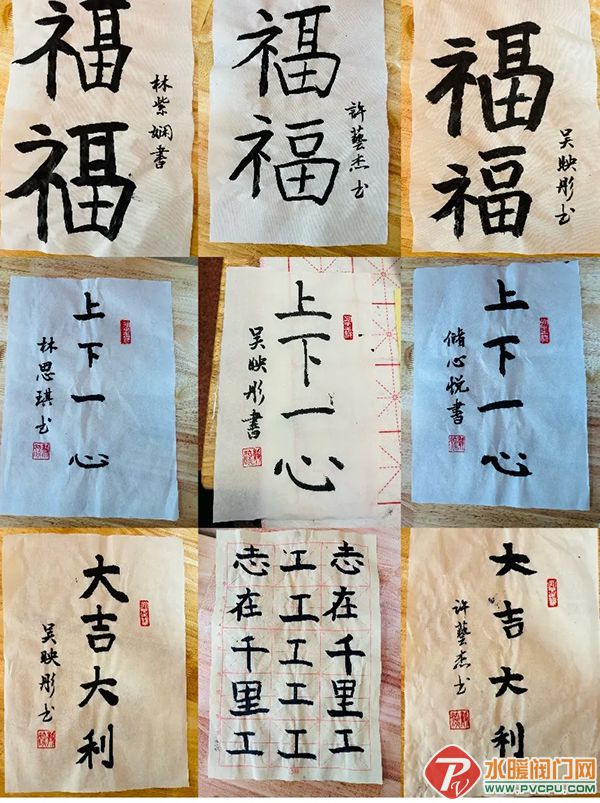 福福
林紫娴書
福福
許藝杰书
福福
吴映彤书
上下一心
林思琪书
上下一心
吴映彤書
上下一心
储心悦書
大吉大利
吴映彤书
志在千里工
工工工工工
志在千里工
大吉大利
许藝杰书
水暖阀门网
WWW.PVCPU.COM